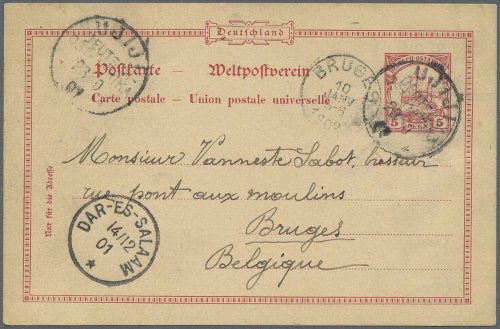 Deutschland
UJIJI
Postkarte — Weltpostverein
Carte postale — Union postale universelle
BRUGES
10
JANV
UJIJI
5 5
Nur für die Adresse
Monsieur Vanneste Sabot, brasseur
rue pont aux moulins
Bruges
Belgique
DAR-ES-SALAAM
14/12
01